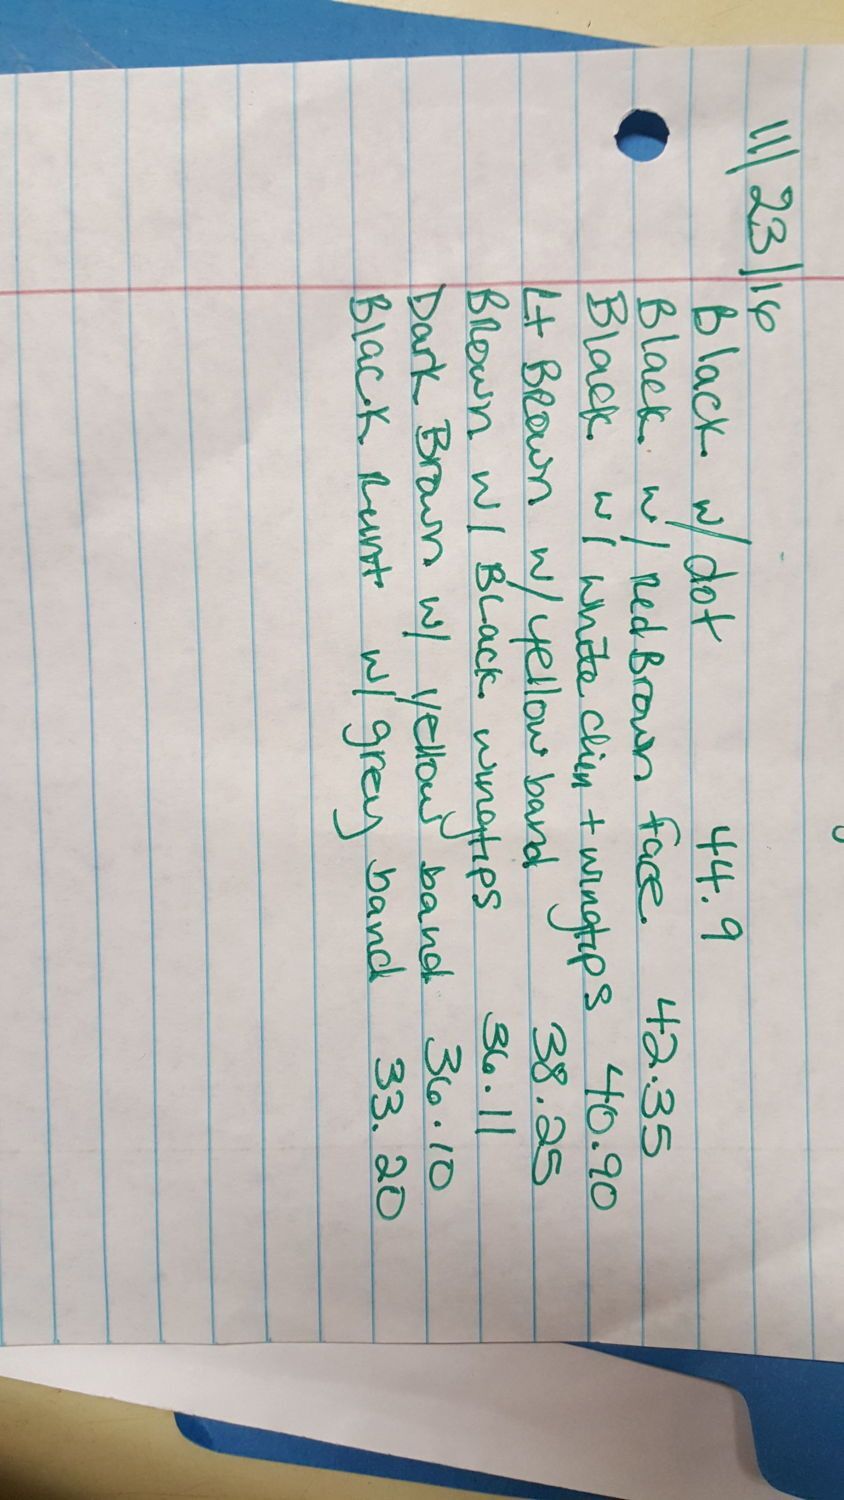 11/23/16
Black w/dot 44.9
Black w/ red Brown face 42.35
Black w/ white chin + wingtips 40.90
Lt Brown w/ yellow band 38.25
Brown w/ Black wingtips 36.11
Dark Brown w/ yellow band 36.10
Black Runt w/ grey band 33.20